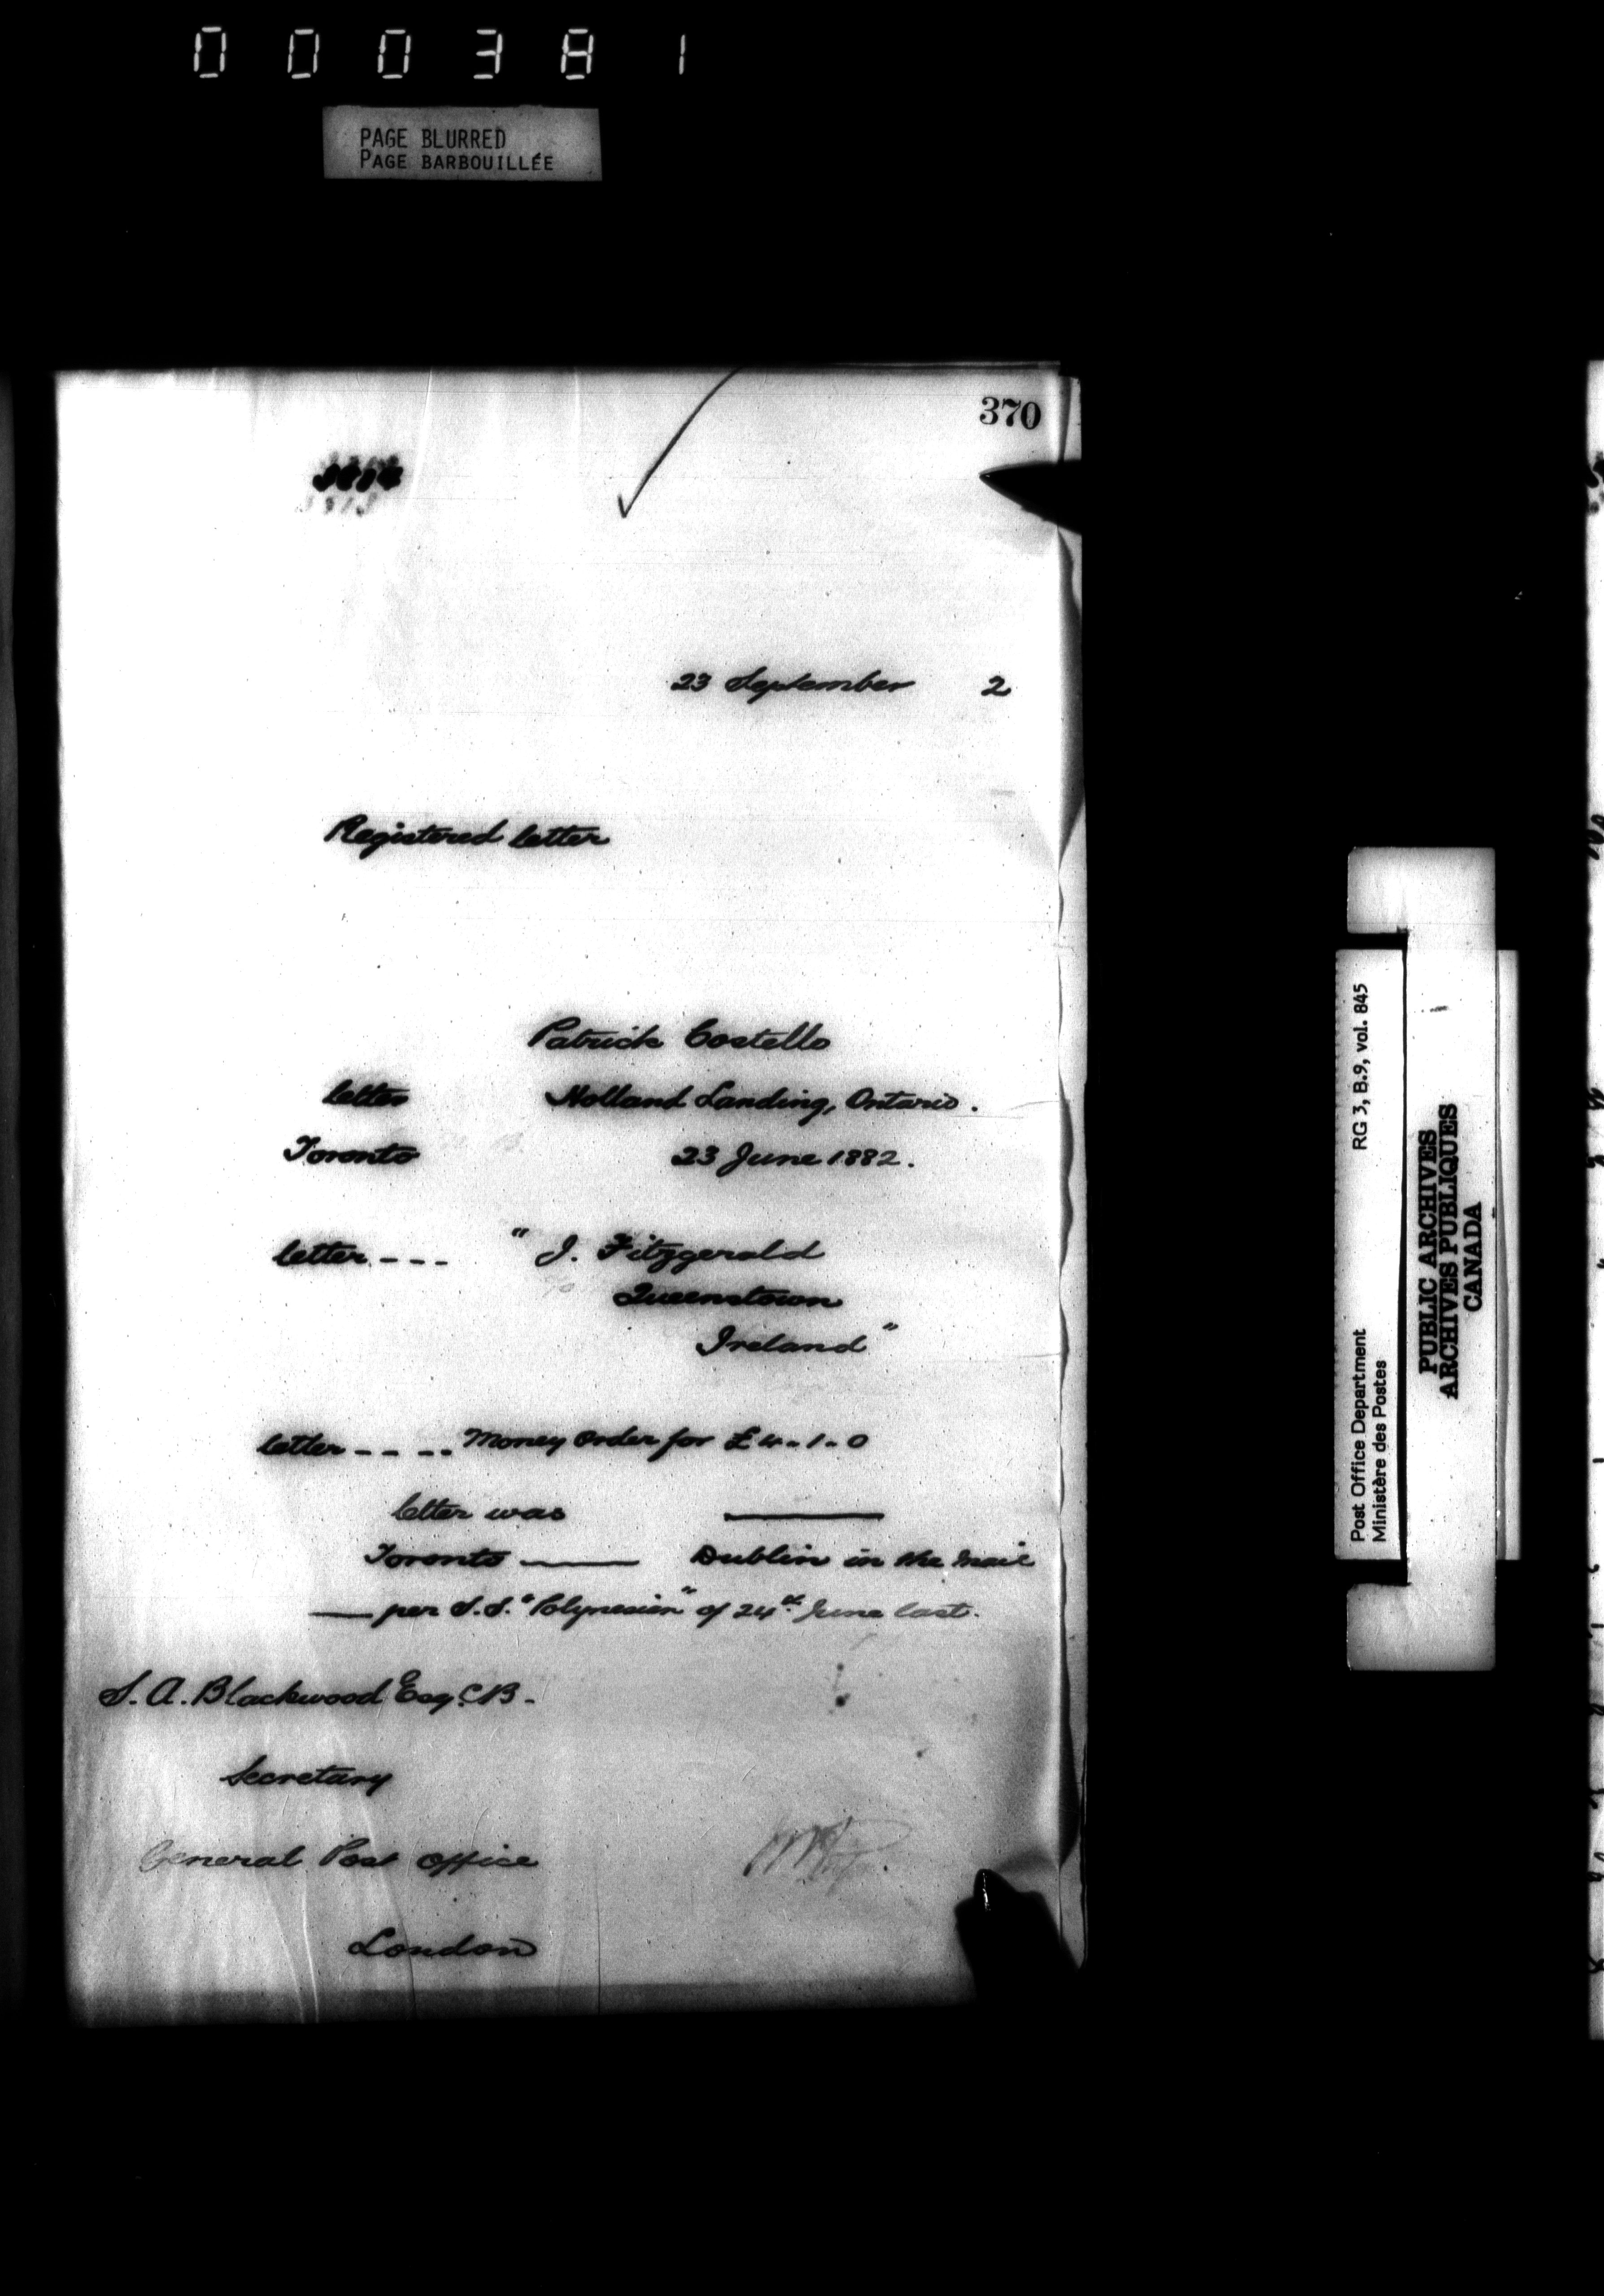 000381
PAGE BLURRED
PAGE BARBOUILLÉE
370
23 September 2
Registered letter
Patrick Costello
letter Holland Landing, Ontario.
Toronto 23 June 1882.
letter - - - " J. Fitzgerald
Queenstown
Ireland "
letter - - - - Money Order for £4-1-0
letter was ———
Toronto ——— Dublin in the mail
—— per S.S. "Polynesian" of 24th June last.
S. A. Blackwood Esq. CB.
Secretary
General Post Office
London
RG 3, B.9, vol. 845
Post Office Department
Ministère des Postes
PUBLIC ARCHIVES
ARCHIVES PUBLIQUES
CANADA